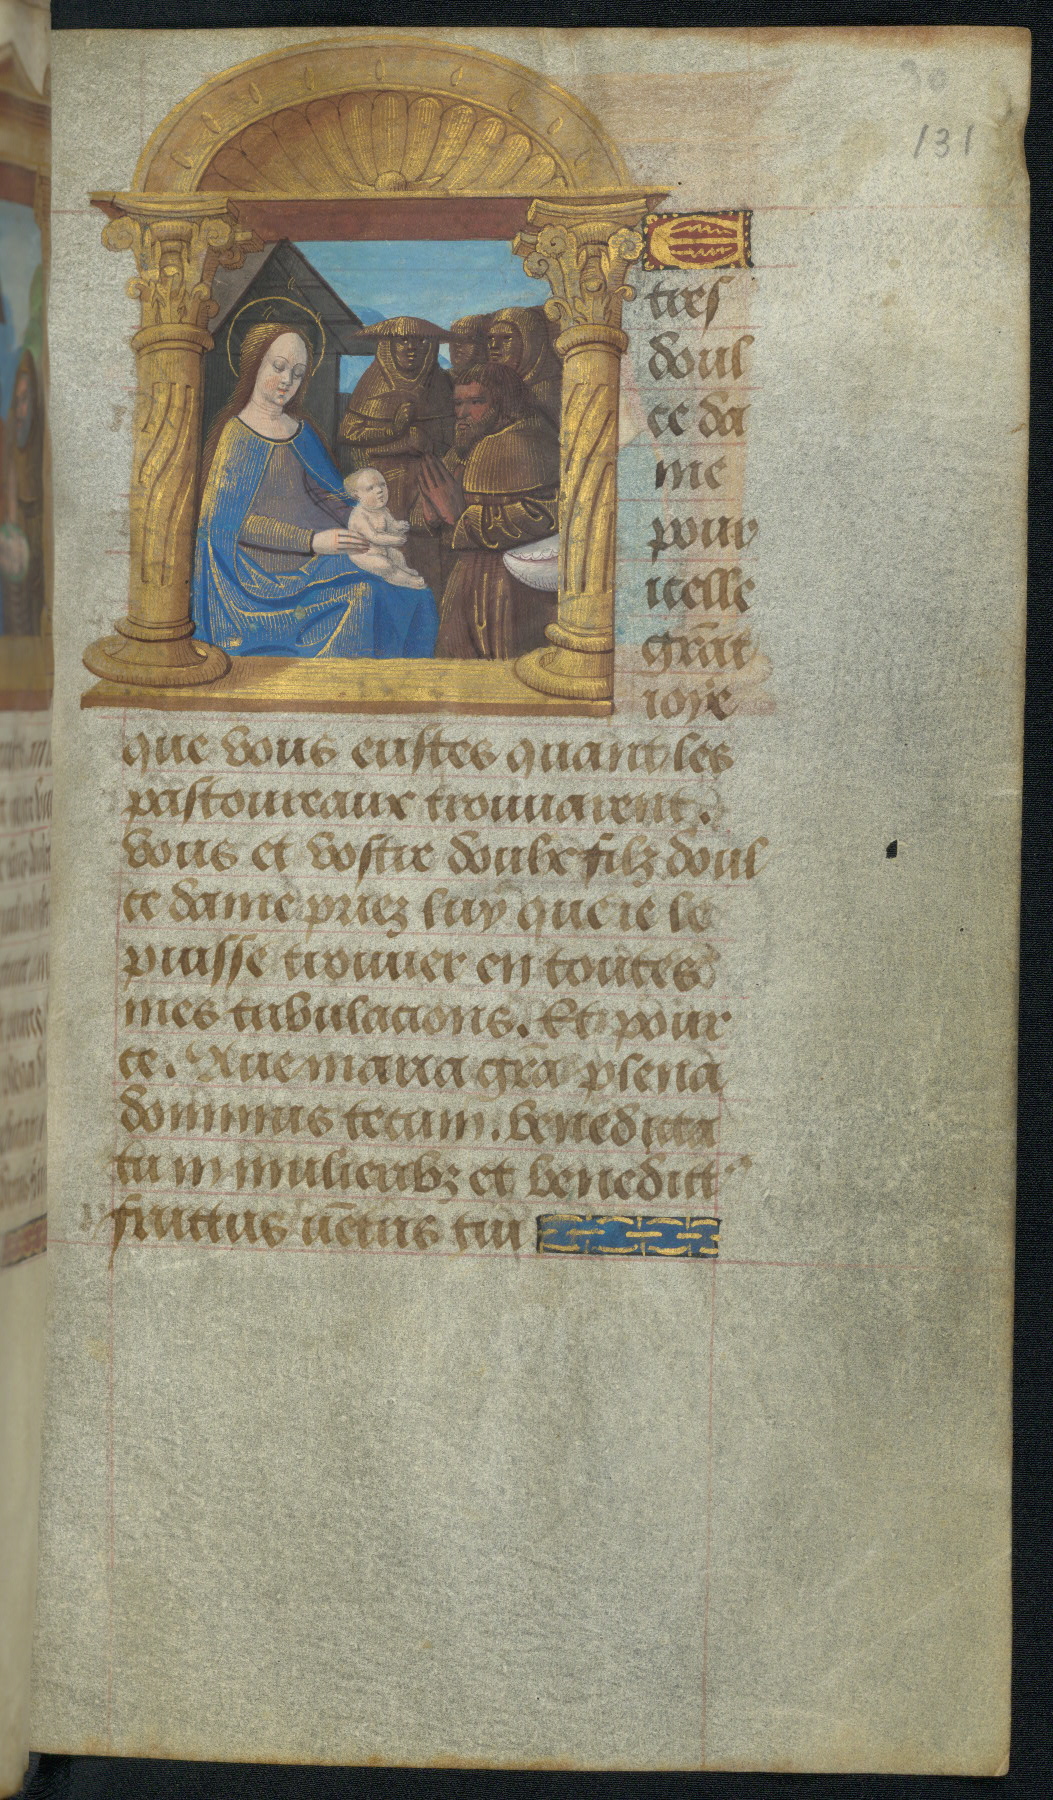 30
131
E
tres
doul
ce da
me
pour
icelle
grāt
ioye
que vous eustes quant les
pastoureaux trouuarent.
vous et vostre doulx filz doul
ce dame priez luy que ie le
puisse trouuer en toutes
mes tribulacions. Et pour
ce. Aue maria gr̄a plena
dominus tecum. benedicta
tu in mulieribꝫ et benedictꝰ
fructus uētris tui